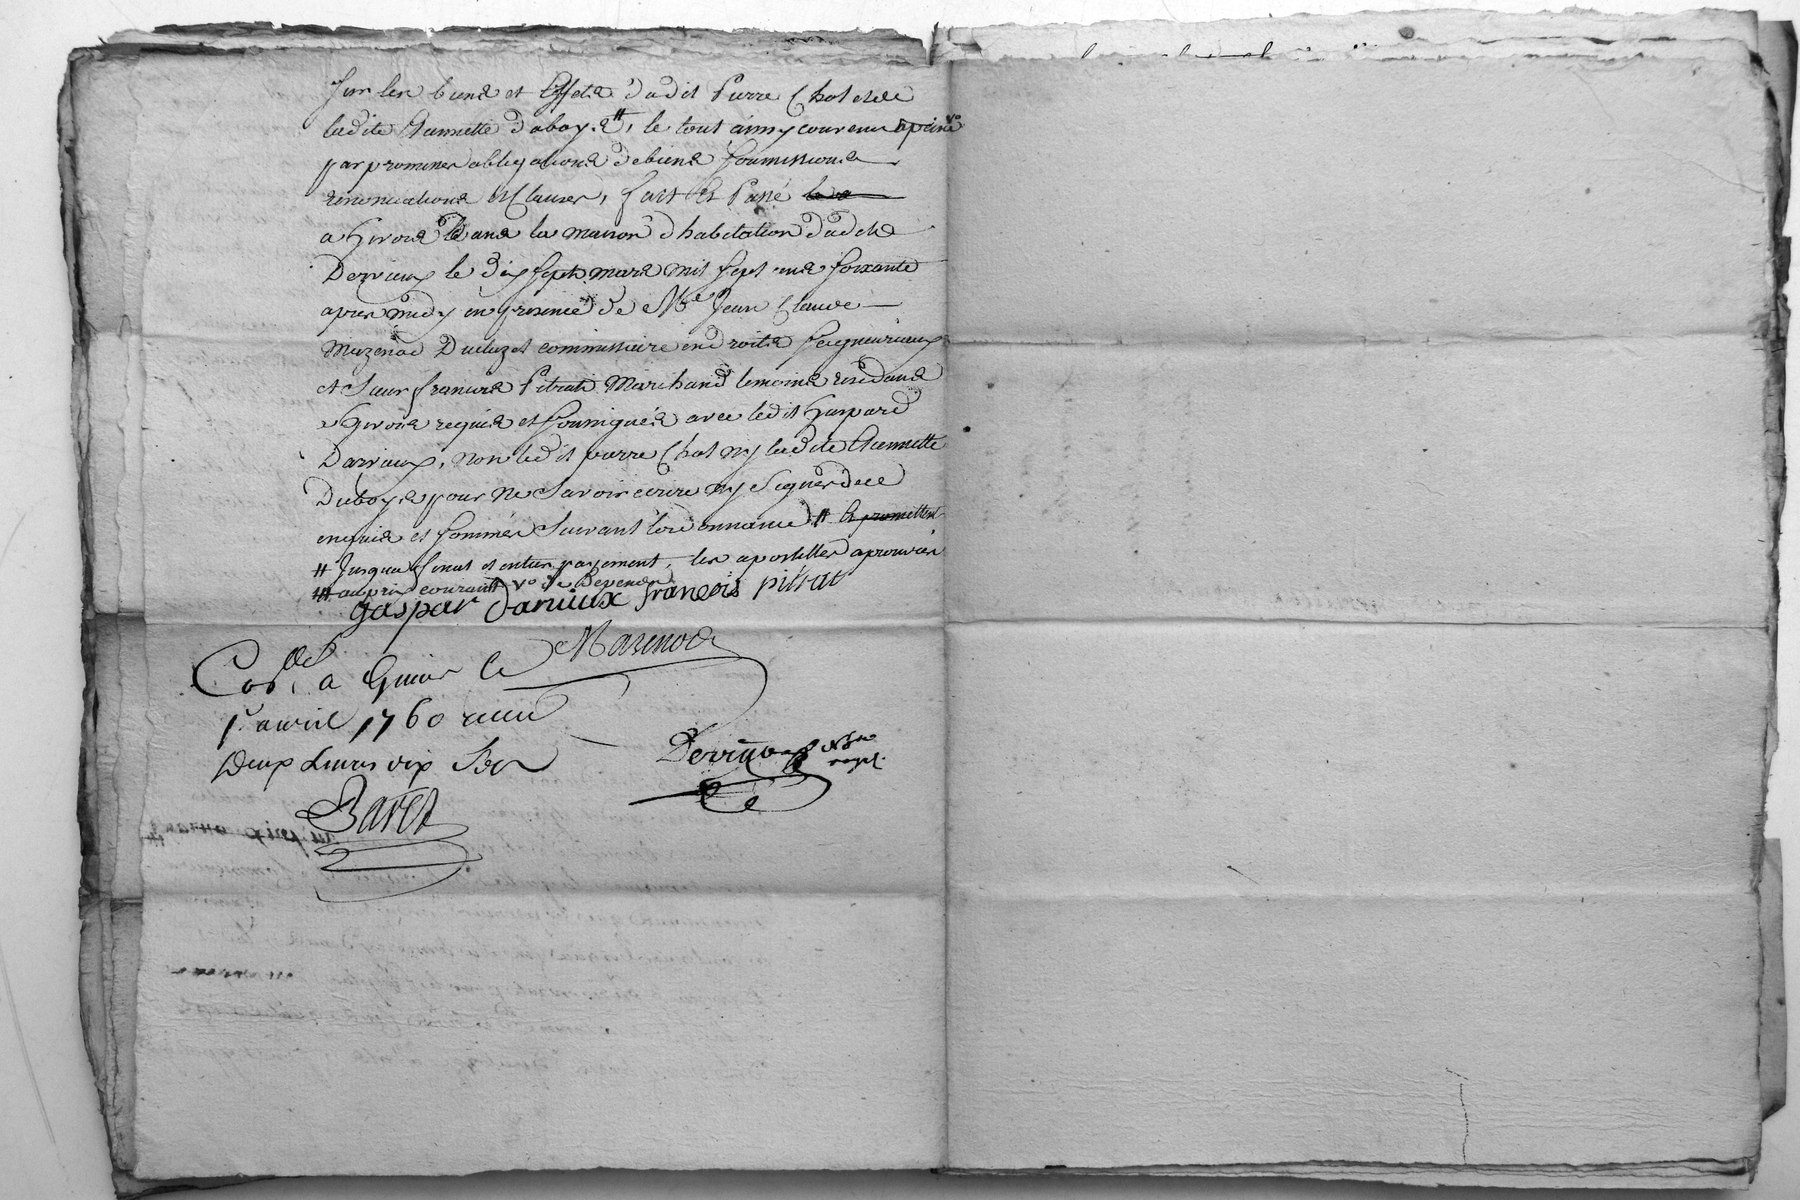 sur les biens et Effets dudit Pierre Chol et de
ladite Etiennette duboys #, le tout ainsy convenu a peine vo
par promesses obligations de biens soumissions
renonciations et Clauses, fait et Passé
a Givors dans la maison d'habitation dudit
Darvieux le dix sept mars mil sept cens soixante
apres midy en presence de Me Jean Claude
Mazenod Ducluzel commissaire en droits seigneuriaux
et Sieur francois Pitrat Marchand temoins residans
a Givors requis et soussignés avec ledit Gaspard
Darvieux, non ledit pierre Chol ny ladite Etiennette
Duboys pour ne savoir ecrire ny signer de ce
enquis et sommés suivant l'ordonnance # et promettent
# Jusqua final et entier payement, les apostilles aprouvées
au prix courant vo de depends
gaspar Darvieux françois pitrat
Mazenod
Coollé a Givors le
1r avril 1760 recu
Deux Livres dix sols
Dervieux Nre royal
Baret